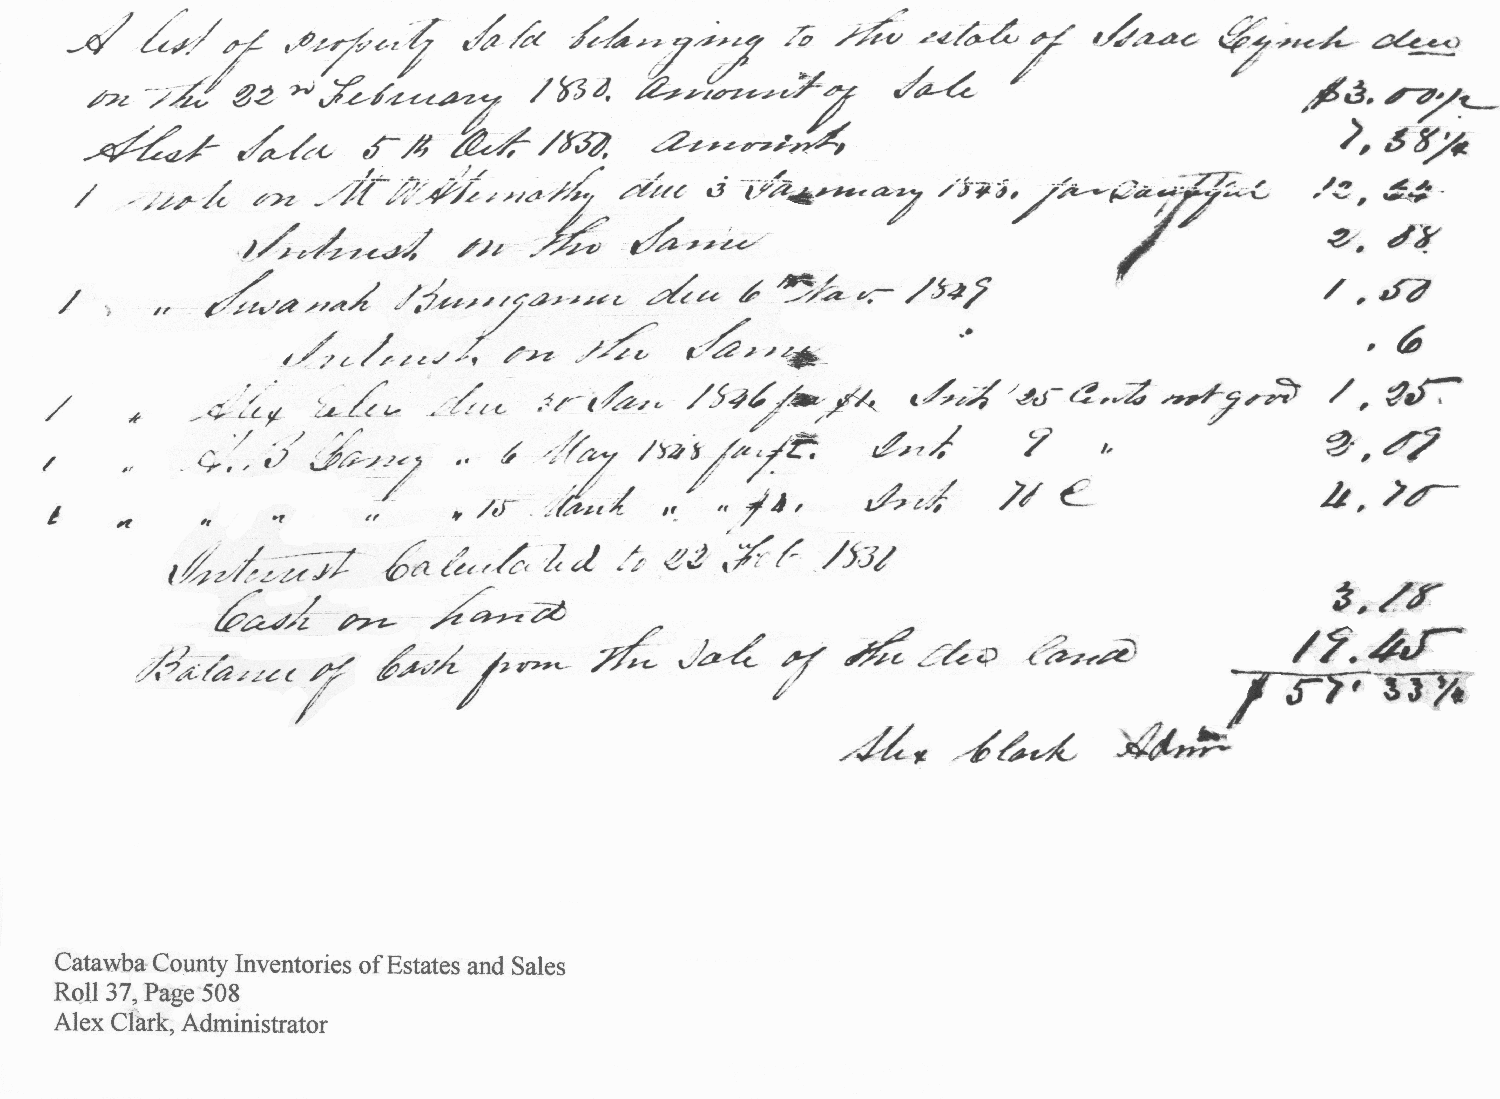 A list of Property Sold belonging to the estate of Isaac Lynch decd
on the 22nd February 1850. Amount of Sale $3.00 1/2
A lest Sold 5th Oct. 1850. Amount, 7,38 1/4
1 note on M W Abernathy due 3 January 1848. 12,44
Interest on the Same 2.88
1 " Susanah Bumgarner due 6th Nov. 1849 1.50
Interest on the Same .6
1 " Alex due 30 Jan 1846 Int 25 Cents not good 1,25
1 " " 6 May 1848 Int. 9 " 2,09
1 " " " " " 15 March " " Int. 70 C 4,70
Interest Calculated to 22 Feb 1851
Cash on hand 3.18
Balance of Cash from the Sale of the decd land 19.45
$57.33 3/4
Alex Clark Admr
Catawba County Inventories of Estates and Sales
Roll 37, Page 508
Alex Clark, Administrator